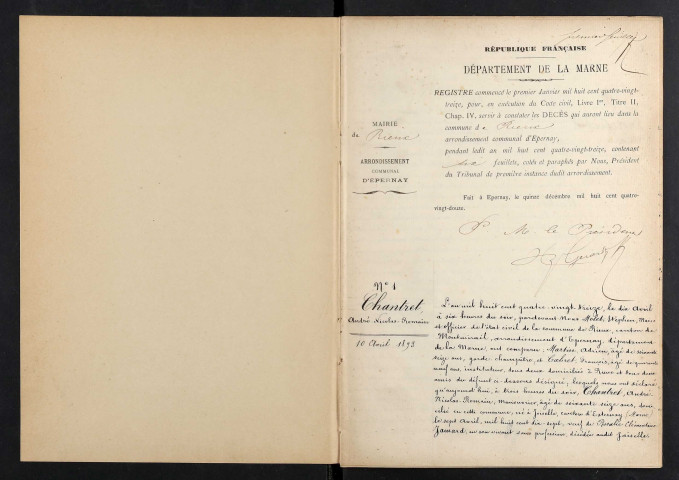 premier feuillet
RÉPUBLIQUE FRANÇAISE
DÉPARTEMENT DE LA MARNE
MAIRIE
de Rieux
ARRONDISSEMENT
COMMUNAL
D'ÉPERNAY
REGISTRE commencé le premier Janvier mil huit cent quatre-vingt-
treize, pour, en exécution du Code civil, Livre Ier, Titre II,
Chap. IV, servir à constater les DÉCÈS qui auront lieu dans la
commune de Rieux
arrondissement communal d'Epernay,
pendant ledit an mil huit cent quatre-vingt-treize, contenant
six feuillets, cotés et paraphés par Nous, Président
du Tribunal de première instance dudit arrondissement.
Fait à Epernay, le quinze décembre mil huit cent quatre-
vingt-douze.
P. M. le Président
N° 1
Chantret,
André Nicolas Romain
10 Avril 1893
L'an mil huit cent quatre-vingt-treize, le dix Avril
à six heures du soir, pardevant Nous Stéphen, Maire
et officier de l'état civil de la commune de Rieux, canton de
Montmirail, arrondissement d'Epernay, département
de la Marne, ont comparu: Adrien, âgé de soixante
seize ans, garde champêtre, et François, âgé de quarante
neuf ans, instituteur, tous deux domiciliés à Rieux et tous deux
amis du défunt ci-dessous désigné, lesquels nous ont déclaré
qu'aujourd'hui, à trois heures du soir, Chantret, André
Nicolas Romain, manouvrier, âgé de soixante seize ans, domi-
cilié en cette commune, né à Joiselle, canton d'Esternay (Marne)
le sept Avril, mil huit cent dix-sept, veuf de Clémentine
en son vivant sans profession, décédée audit Joiselle